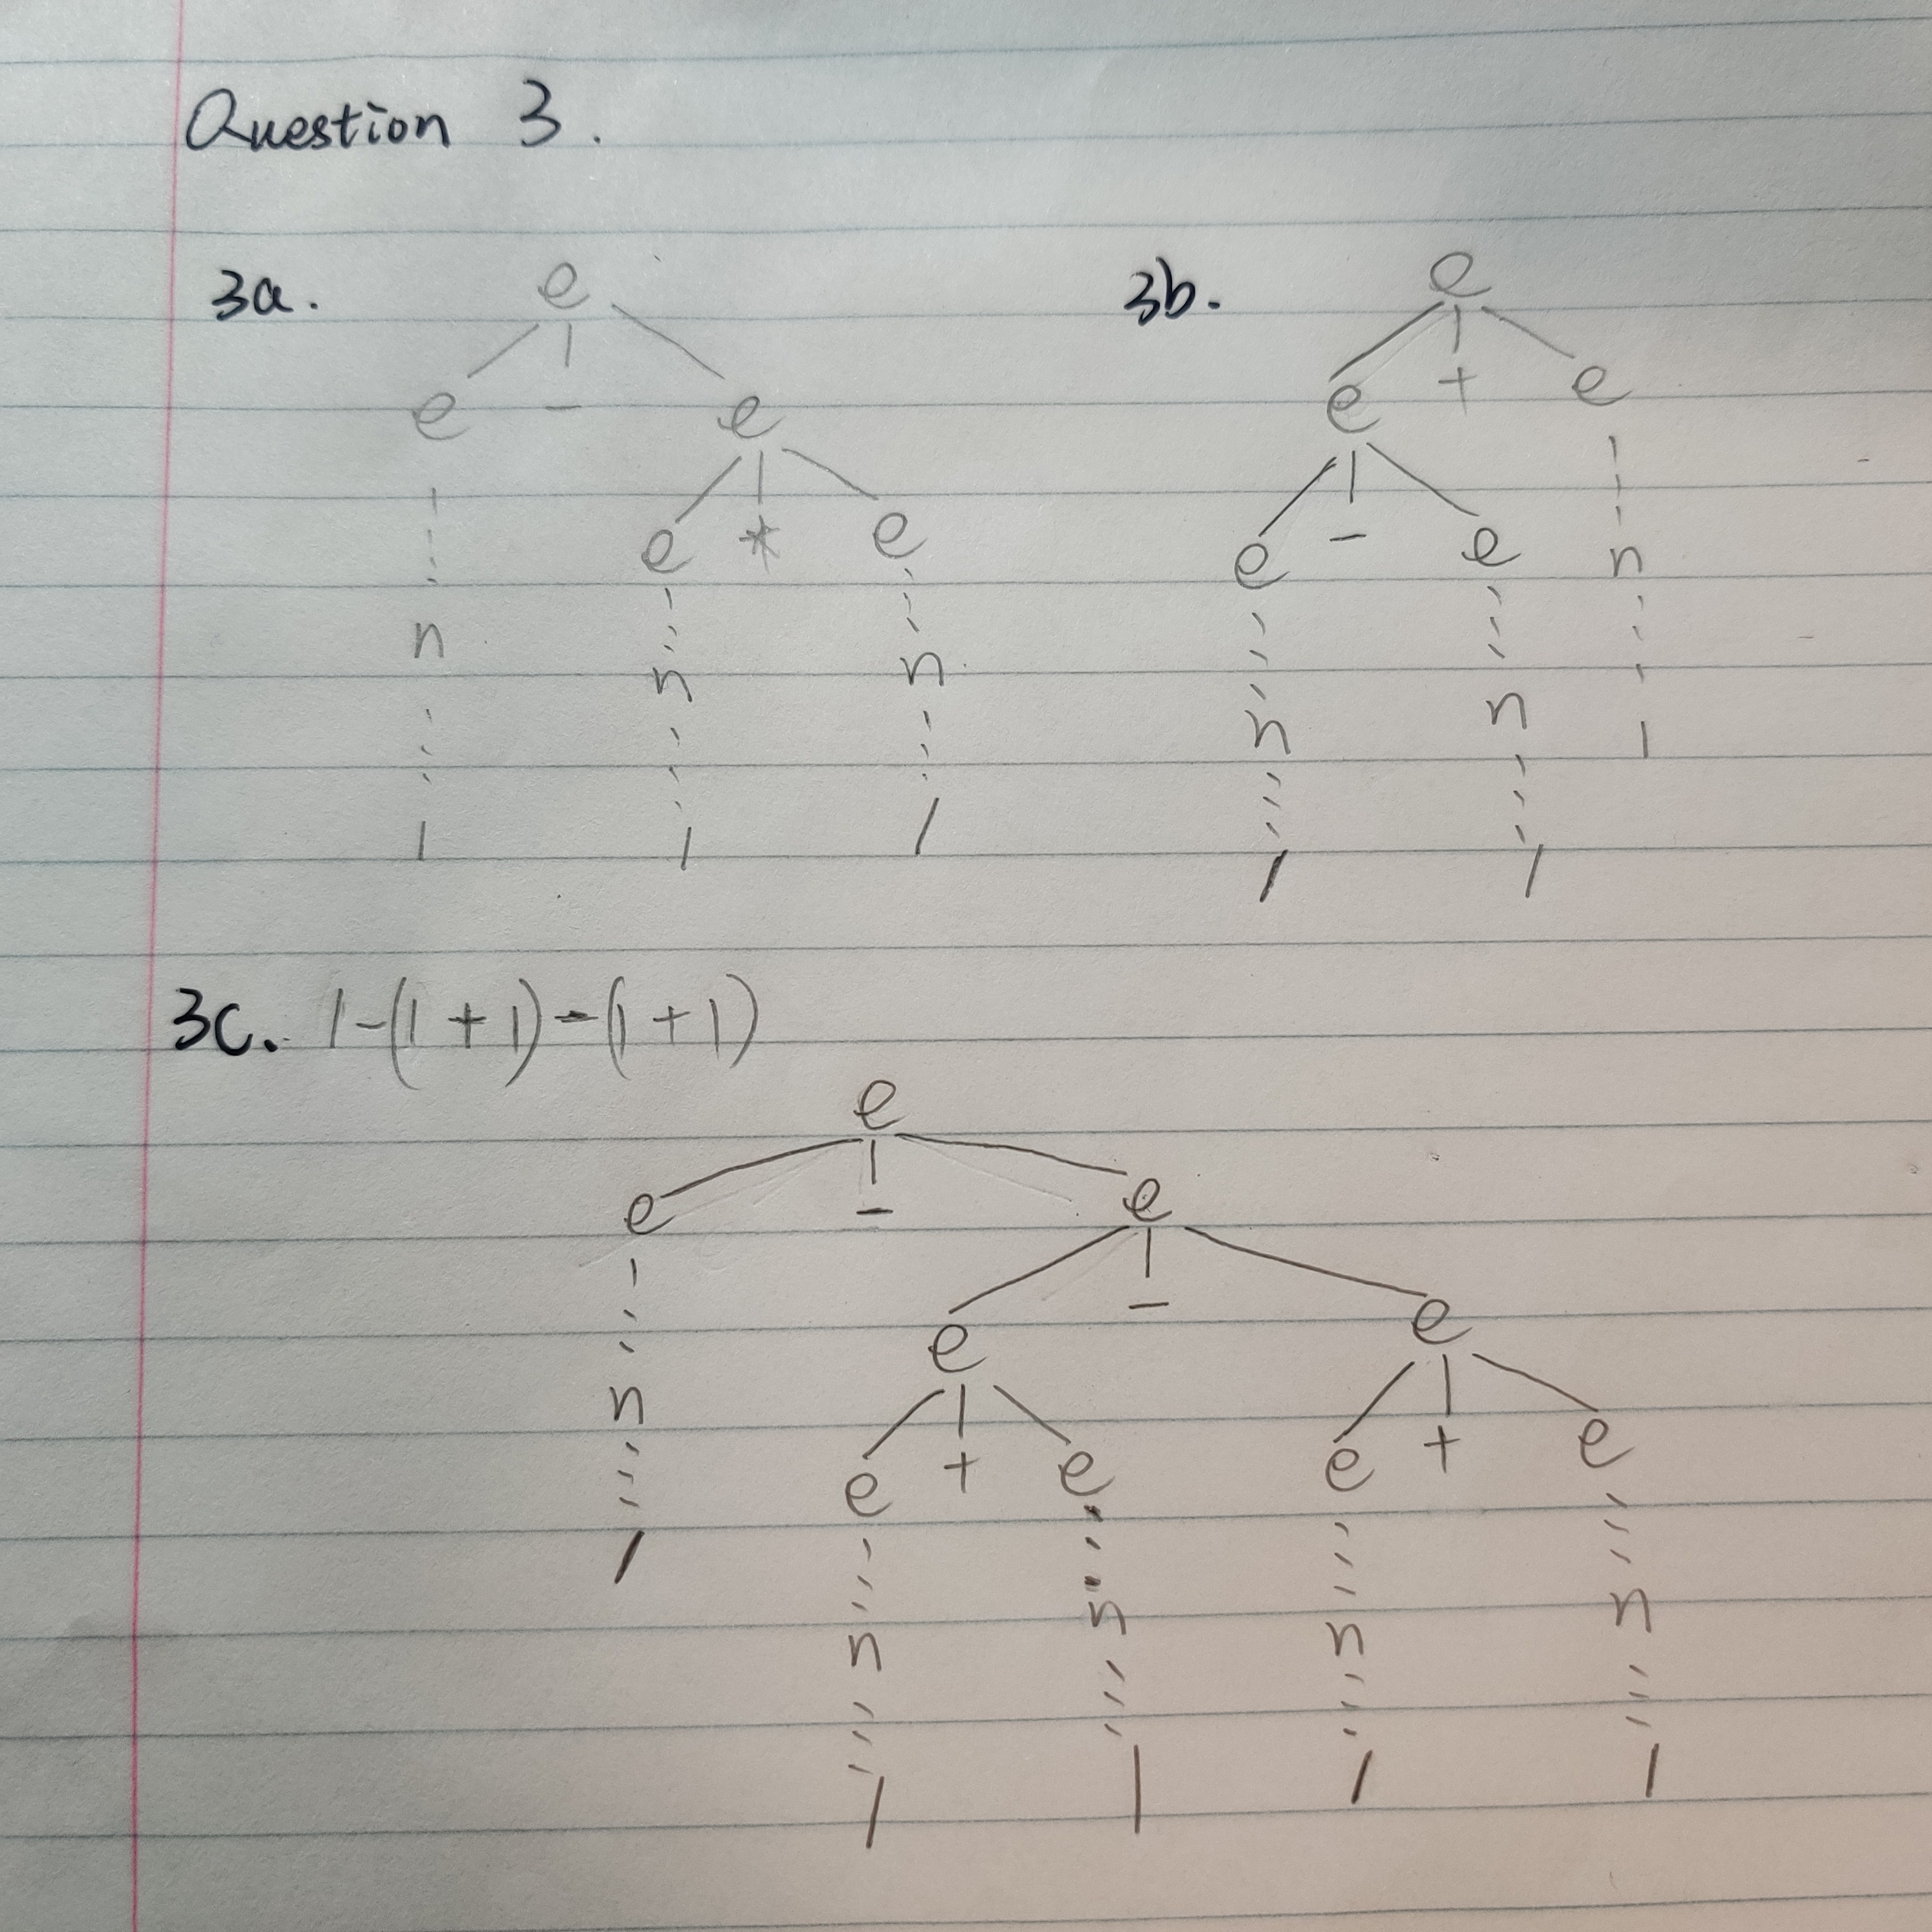 Question 3.
3a.
e
e - e
e * e
n
n n
1 1 1
3b.
e
e + e
e - e
n
n n
1
1 1
3c. 1-(1+1)-(1+1)
e
e - e
e - e
n
e + e e + e
1
n n n n
1 1 1 1